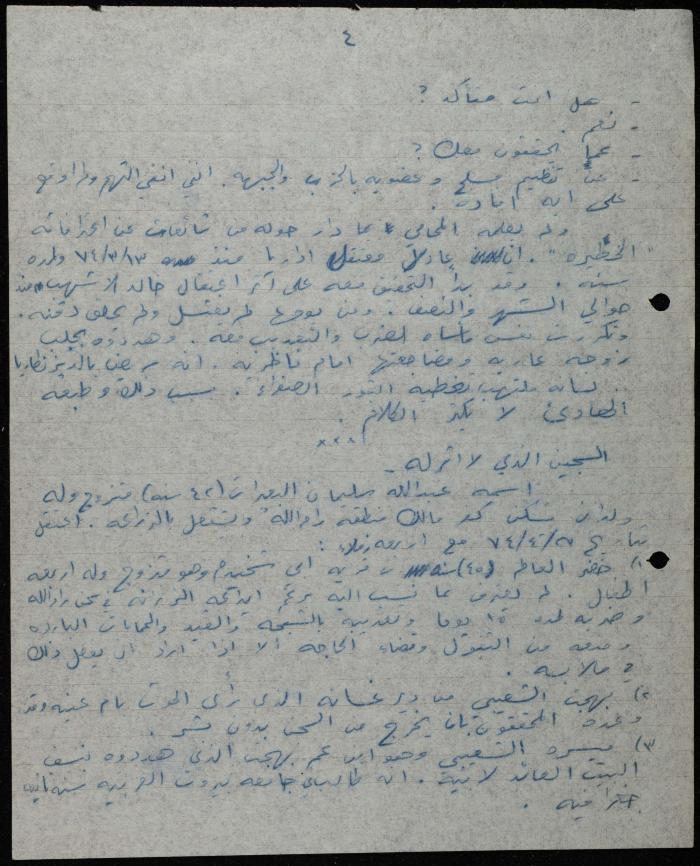 ٤
- هل انت متأكد ؟
- نعم .
- عما يحققون معك ؟
- عن تنظيم مسلح وعضويه بالحزب والجبهه. انني انفي التهم ولم اوقع
على ايه افادة .
ولم يعلمه المحامي بما دار حوله من شائعات عن اعترافاته
" الخطيره " . ان عادل معتقل اداريا منذ ٧٤/٣/١٣ ولمده
سنه . وقد بدأ التحقيق معه على أثر اعتقال خالد الاشهب منذ
حوالي الشهر والنصف . ومن يومها لم يغتسل ولم يحلق ذقنه .
وتكررت نفس مأساه الضرب والتعذيب معه . وهددوه بجلب
زوجه عاريه ومضاجعتها امام ناظريه . انه مريض بالديزنطاريا
.. لسانه ملتهب تغطيه الصفراء . بسبب ذلك وطبعه
الهادئ لا يكثر الكلام .
***
السجين الذي لا اثر له -
اسمه عبدالله سليمان (٤٢ سنه) متزوج وله
ولدان سكن كفر مالك منطقة رام الله ويشتغل بالزراعه . اعتقل
بتاريخ ٧٤/٤/٢٧ مع اربعه زملاء :
١) خضر العالم (٤٥) من قريه ابو شخيدم وهو متزوج وله اربعه
اطفال . لم يعترف بما نسب اليه برغم ابقائه في سجن رام الله
وضربه لمده ١٥ يوما وتعذيبه بالشبحه والقيد والحمامات البارده
ومنعه من التبول وقضاء الحاجه الا اذا اراد ان يفعل ذلك
في ملابسه .
٢) بهجت الشعيبي من دير غسانه الذي رأى الموت بأم عينه وقد
وعده المحققون بان يخرج من السجن بدون نشر .
٣) ميسره الشعيبي وهو ابن عم بهجت الذي هددوه بنسف
البيت العائد لابيه . انه طالب في جامعه بيروت العربيه سنه ثانيه
جغرافيه .